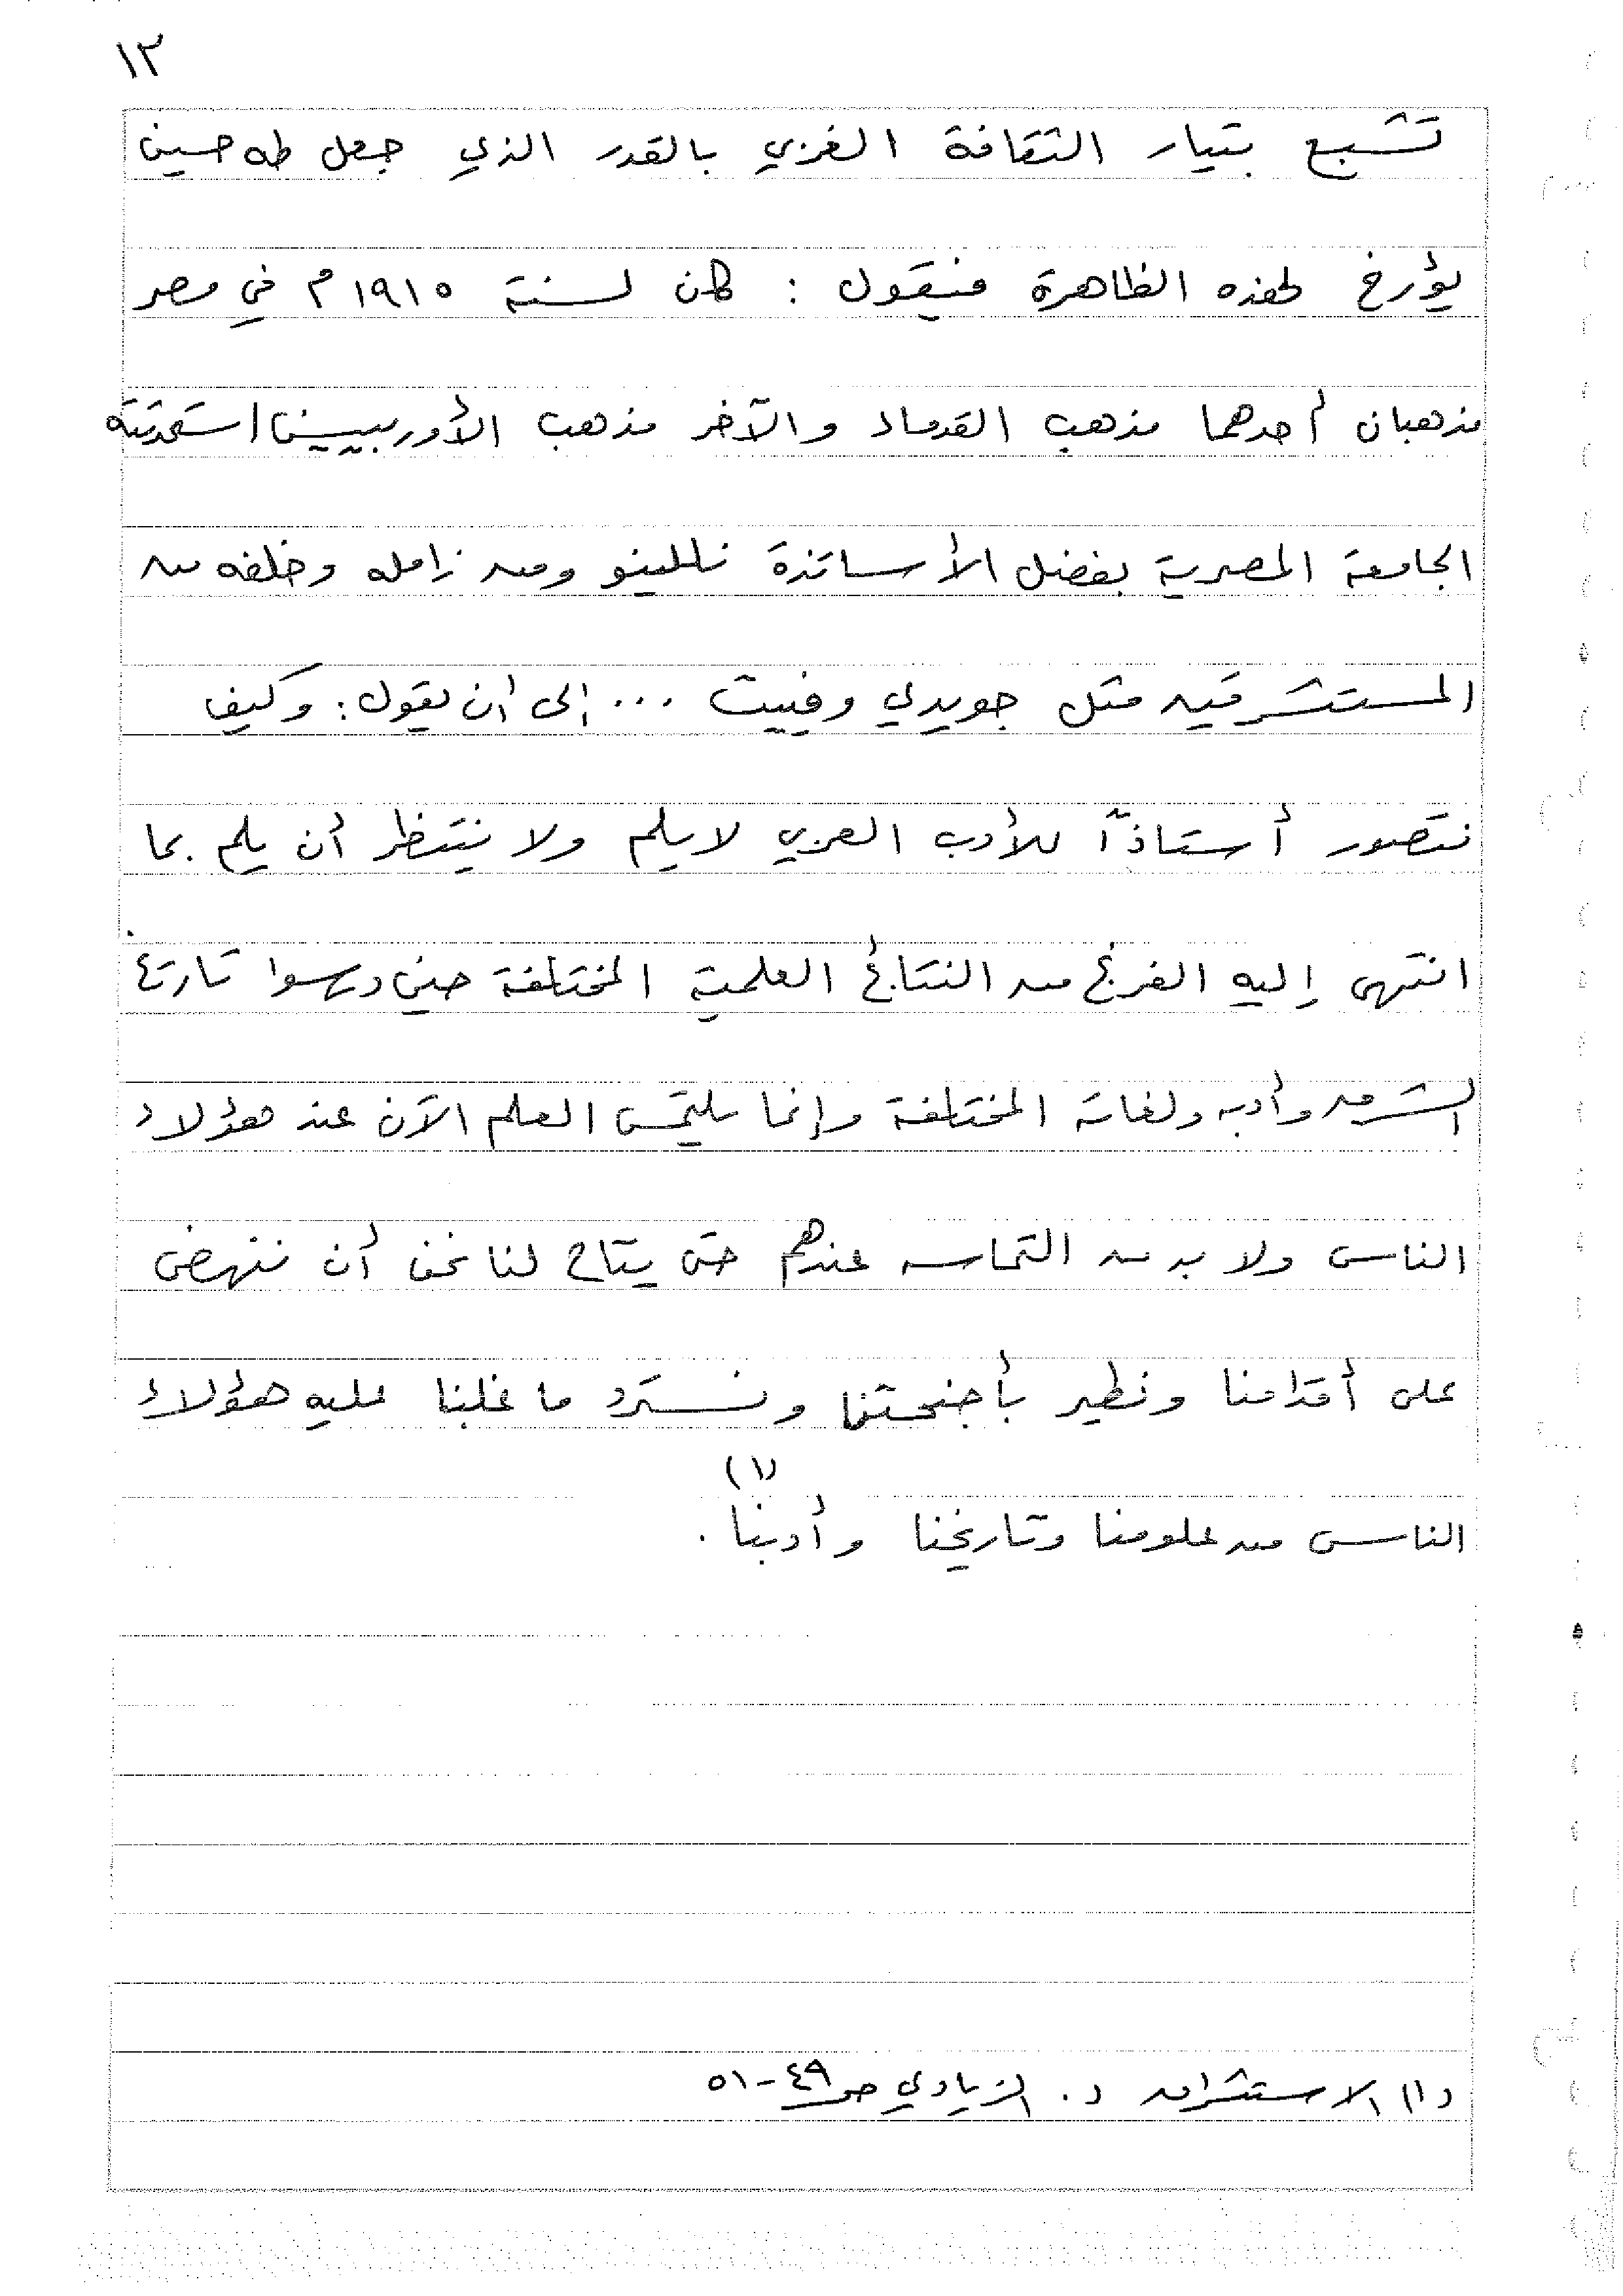 ١٣
تشبع بتيار الثقافة الغربي بالقدر الذي جعل طه حسين
يؤرخ لهذه الظاهرة فيقول : كان لسنة ١٩١٥ م في مصر
مذهبان أحدهما مذهب القدماء والآخر مذهب الأوربيين استحدثته
الجامعة المصرية بفضل الأساتذة نللينو ومن زامله وخلفه من
المستشرقين مثل جويدي وفييت ... إلى أن يقول : وكيف
نتصور أستاذاً للأدب العربي لا يلم ولا ينتظر أن يلم بما
انتهى إليه الفرنج من النتائج العلمية المختلفة حين درسوا تاريخ
الشرق وأدبه ولغاته المختلفة وإنما يلتمس العلم الآن عند هؤلاء
الناس ولا بد من التماسه عندهم حتى يتاح لنا نحن أن ننهض
على أقدامنا ونطير بأجنحتنا ونسترد ما غلبنا عليه هؤلاء
الناس من علومنا وتاريخنا وأدبنا . (١)
(١) الاستشراق د. الزيادي ص ٤٩ - ٥١